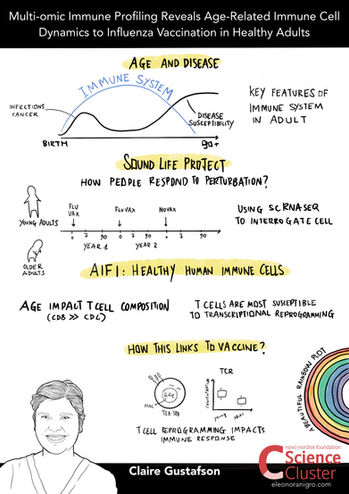 Multi-omic Immune Profiling Reveals Age-Related Immune Cell
Dynamics to Influenza Vaccination in Healthy Adults
AGE AND DISEASE
IMMUNE SYSTEM
INFECTIONS
CANCER
DISEASE
SUSCEPTIBILITY
BIRTH
90+
KEY FEATURES OF
IMMUNE SYSTEM
IN ADULT
SOUND LIFE PROJECT
HOW PEOPLE RESPOND TO PERTURBATION?
YOUNG ADULTS
OLDER
ADULTS
FLU
VAX
FLU VAX
NO VAX
0 7 90
0 7 90
0 7 90
YEAR 1
YEAR 2
USING SCRNA-SEQ
TO INTERROGATE CELL
AIFI: HEALTHY HUMAN IMMUNE CELLS
AGE IMPACT T CELL COMPOSITION
(CD8 >> CD4)
T CELLS ARE MOST SUSCEPTIBLE
TO TRANSCRIPTIONAL REPROGRAMMING
HOW THIS LINKS TO VACCINE?
TEA-SEQ
TCR
T CELL REPROGRAMMING IMPACTS
IMMUNE RESPONSE
A BEAUTIFUL RAINBOW PLOT
Claire Gustafson
novo nordisk foundation
Science
Cluster
eleonoranigro.com